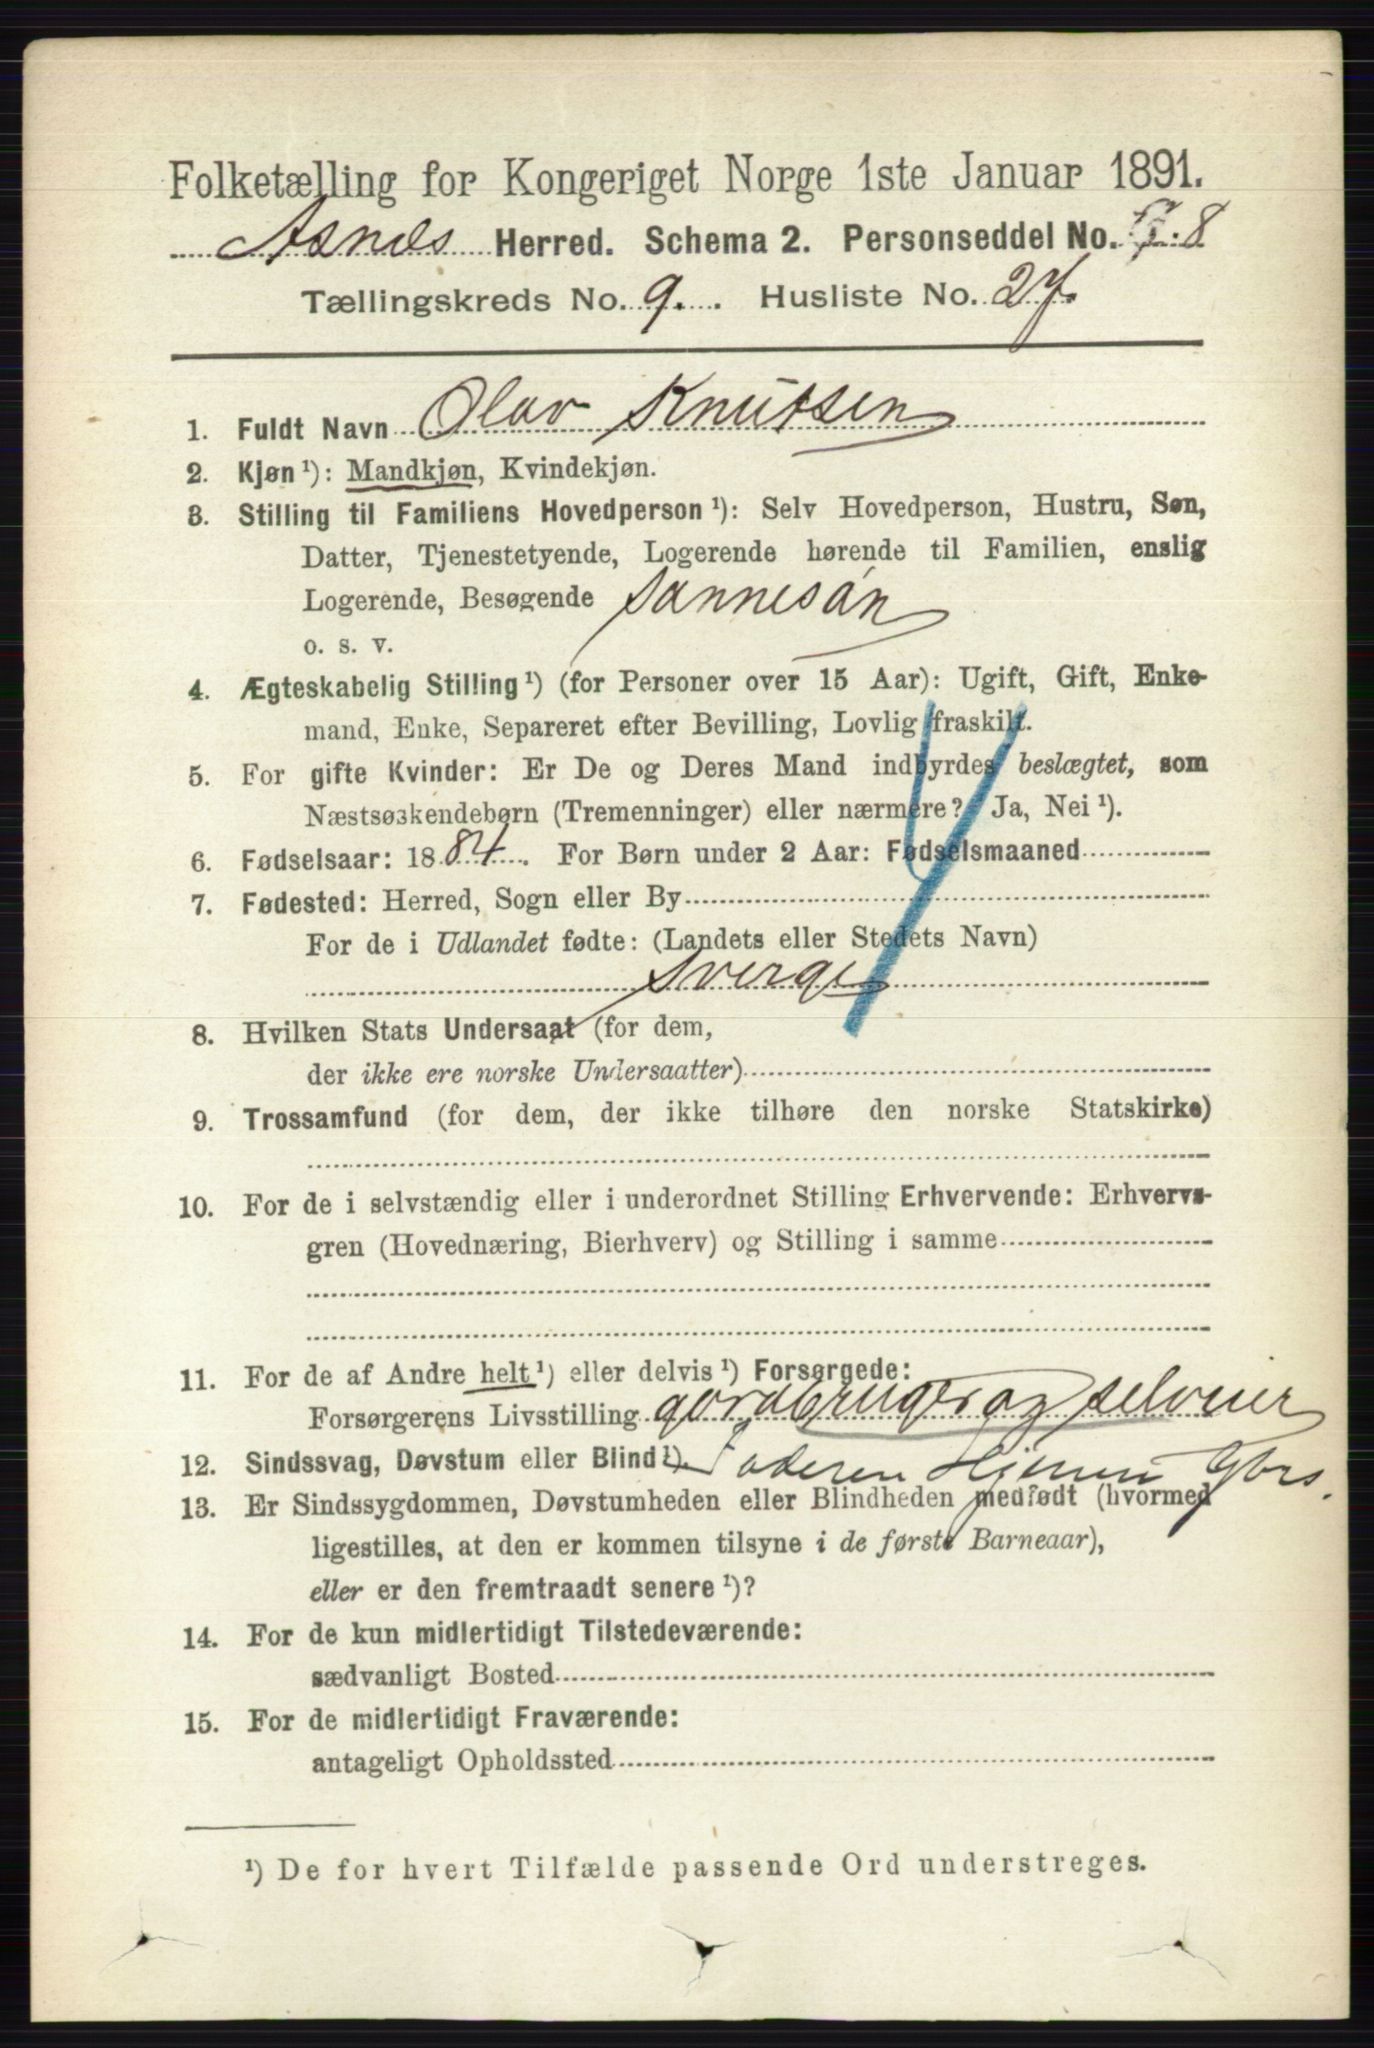 Folketælling for Kongeriget Norge 1ste Januar 1891.
Asnes Herred. Schema 2. Personseddel No. 8
Tællingskreds No. 9. Husliste No. 27.
1. Fuldt Navn Olav Knutsen
2. Kjøn ¹): Mandkjøn, Kvindekjøn.
3. Stilling til Familiens Hovedperson ¹): Selv Hovedperson, Hustru, Søn,
Datter, Tjenestetyende, Logerende hørende til Familien, enslig
Logerende, Besøgende sønnesøn
o. s. v.
4. Ægteskabelig Stilling ¹) (for Personer over 15 Aar): Ugift, Gift, Enke-
mand, Enke, Separeret efter Bevilling, Lovlig fraskilt.
5. For gifte Kvinder: Er De og Deres Mand indbyrdes beslægtet, som
Næstsøskendebørn (Tremenninger) eller nærmere? Ja, Nei ¹).
6. Fødselsaar: 1884. For Børn under 2 Aar: Fødselsmaaned
7. Fødested: Herred, Sogn eller By
For de i Udlandet fødte: (Landets eller Stedets Navn)
Sverge
8. Hvilken Stats Undersaat (for dem,
der ikke ere norske Undersaatter)
9. Trossamfund (for dem, der ikke tilhøre den norske Statskirke)
10. For de i selvstændig eller i underordnet Stilling Erhvervende: Erhvervs-
gren (Hovednæring, Bierhverv) og Stilling i samme
11. For de af Andre helt ¹) eller delvis ¹) Forsørgede:
Forsørgerens Livsstilling gordbruger og selveier
12. Sindssvag, Døvstum eller Blind ¹). Faderen
13. Er Sindssygdommen, Døvstumheden eller Blindheden medfødt (hvormed
ligestilles, at den er kommen tilsyne i de første Barneaar),
eller er den fremtraadt senere ¹)?
14. For de kun midlertidigt Tilstedeværende:
sædvanligt Bosted
15. For de midlertidigt Fraværende:
antageligt Opholdssted
¹) De for hvert Tilfælde passende Ord understreges.